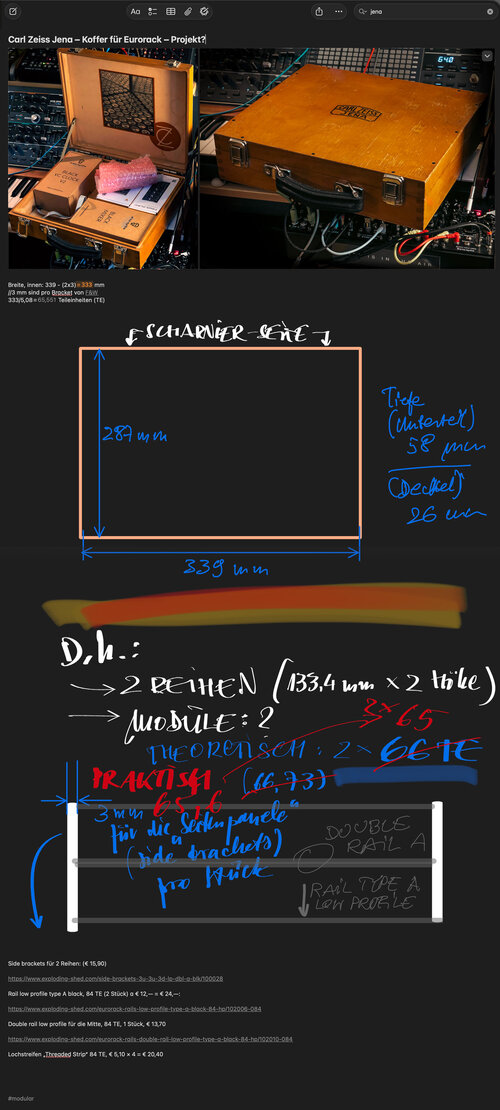 Aa
jena
Carl Zeiss Jena – Koffer für Eurorack – Projekt?
64.0
BLACK
VC CLOCK
V2
BLACK
CARL ZEISS
JENA
Breite, innen: 339 - (2x3)=333 mm
//3 mm sind pro Bracket von F&W
333/5,08=65,551 Teileinheiten (TE)
SCHARNIER-SEITE
287 mm
Tiefe
(Unterteil)
58 mm
(Deckel)
26 mm
339 mm
D.h.:
→ 2 REIHEN (133,4 mm × 2 Höhe)
→ MODULE: ?
2× 65
THEORETISCH: 2 × 66 TE
PRAKTISCH (66,73)
65,6
3 mm
für die Seitenpanele
(side brackets)
pro Stück
DOUBLE
RAIL A
RAIL TYPE A
LOW PROFILE
Side brackets für 2 Reihen: (€ 15,90)
https://www.exploding-shed.com/side-brackets-3u-3u-3d-le-dbl-a-blk/100028
Rail low profile type A black, 84 TE (2 Stück) a € 12,-- = € 24,--:
https://www.exploding-shed.com/eurorack-rails-low-profile-type-a-black-84-hp/102006-084
Double rail low profile für die Mitte, 84 TE, 1 Stück, € 13,70
https://www.exploding-shed.com/eurorack-rails-double-rail-low-profile-type-a-black-84-hp/102010-084
Lochstreifen „Threaded Strip" 84 TE, € 5,10 × 4 = € 20,40
#modular